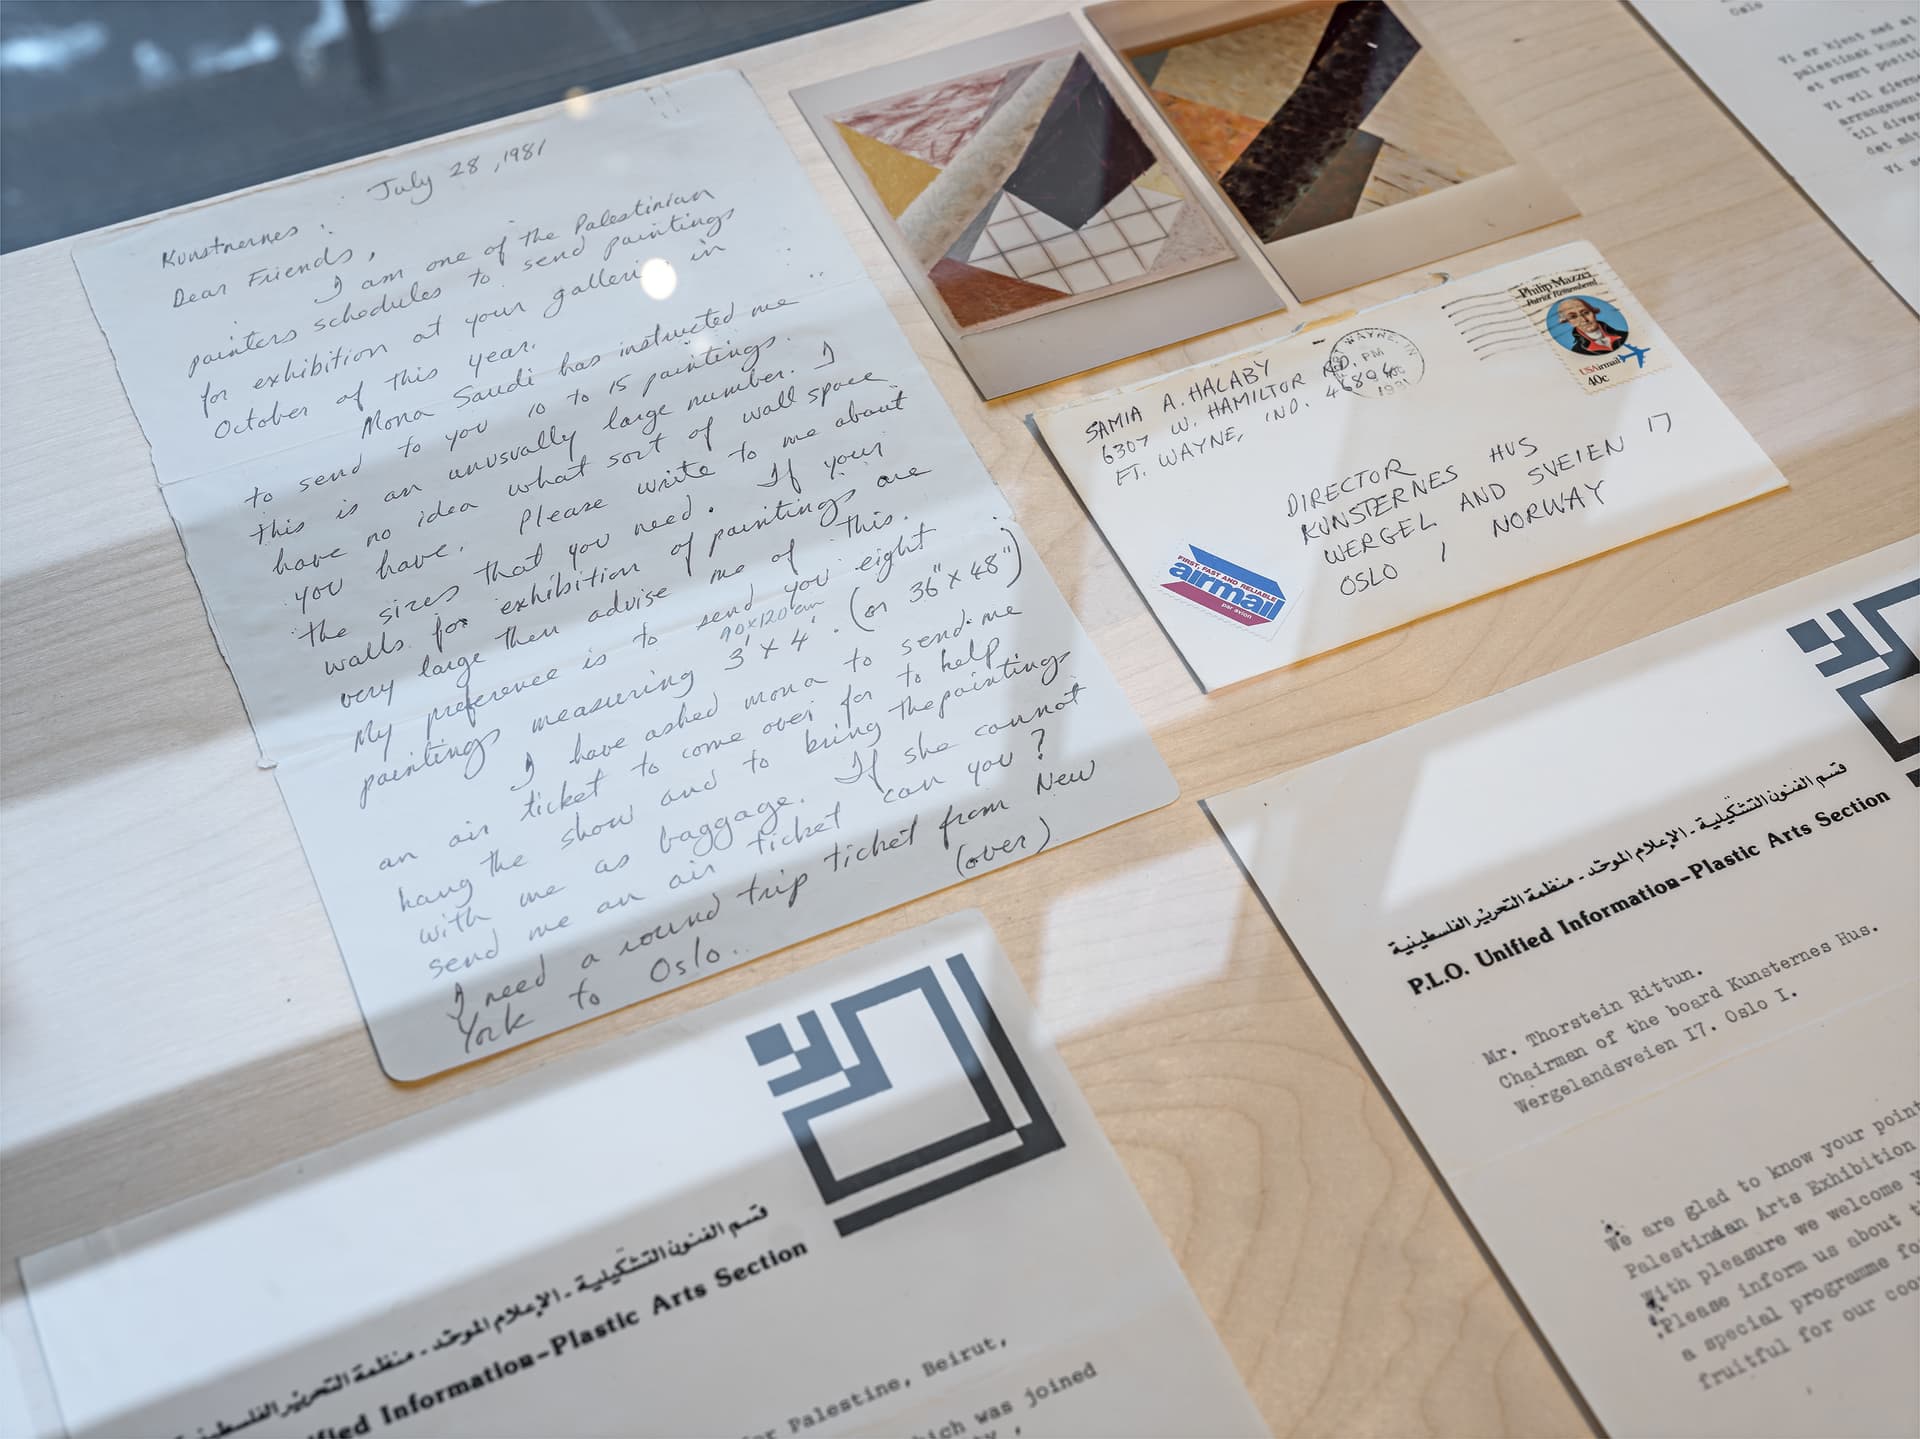 July 28, 1981
Kunstnernes :
Dear Friends,
I am one of the Palestinian
painters schedules to send paintings
for exhibition at your galleries in
October of this year.
Mona Saudi has instructed me
to send to you 10 to 15 paintings.
this is an unusually large number. I
have no idea what sort of wall space
you have. Please write to me about
the sizes that you need. If your
walls for exhibition of paintings are
very large then advise me of this.
My preference is to send you eight
90x120cm
paintings measuring 3' x 4'. (or 36" x 48")
I have asked mona to send me
an air ticket to come over for to help
hang the show and to bring the paintings
with me as baggage. If she cannot
send me an air ticket can you?
I need a round trip ticket from New
York to Oslo..
(over)
SAMIA A. HALABY
6307 W. HAMILTON RD.
FT. WAYNE, IND. 46804
WAYNE, IN
PM
1981
Philip Mazzei
Patriot Remembered
USAirmail
40c
DIRECTOR
KUNSTERNES HUS
WERGEL AND SVEIEN 17
OSLO 1 NORWAY
FIRST, FAST AND RELIABLE
airmail
par avion
Oslo
Vi er kjent med at
palestinsk kunst
et svært positi
Vi vil gjerne
arrangement
til diver
det
Vi
قسم الفنون التشكيلية - الإعلام الموحّد - منظمة التحرير الفلسطينية
P.L.O. Unified Information-Plastic Arts Section
Mr. Thorstein Rittun.
Chairman of the board Kunsternes Hus.
Wergelandsveien I7. Oslo I.
We are glad to know your point
Palestinian Arts Exhibition
With pleasure we welcome y
Please inform us about t
a special programme fo
fruitful for our coo
قسم الفنون التشكيلية - الإعلام الموحّد - منظمة التحرير الفلسطينية
ified Information-Plastic Arts Section
or Palestine, Beirut,
hich was joined